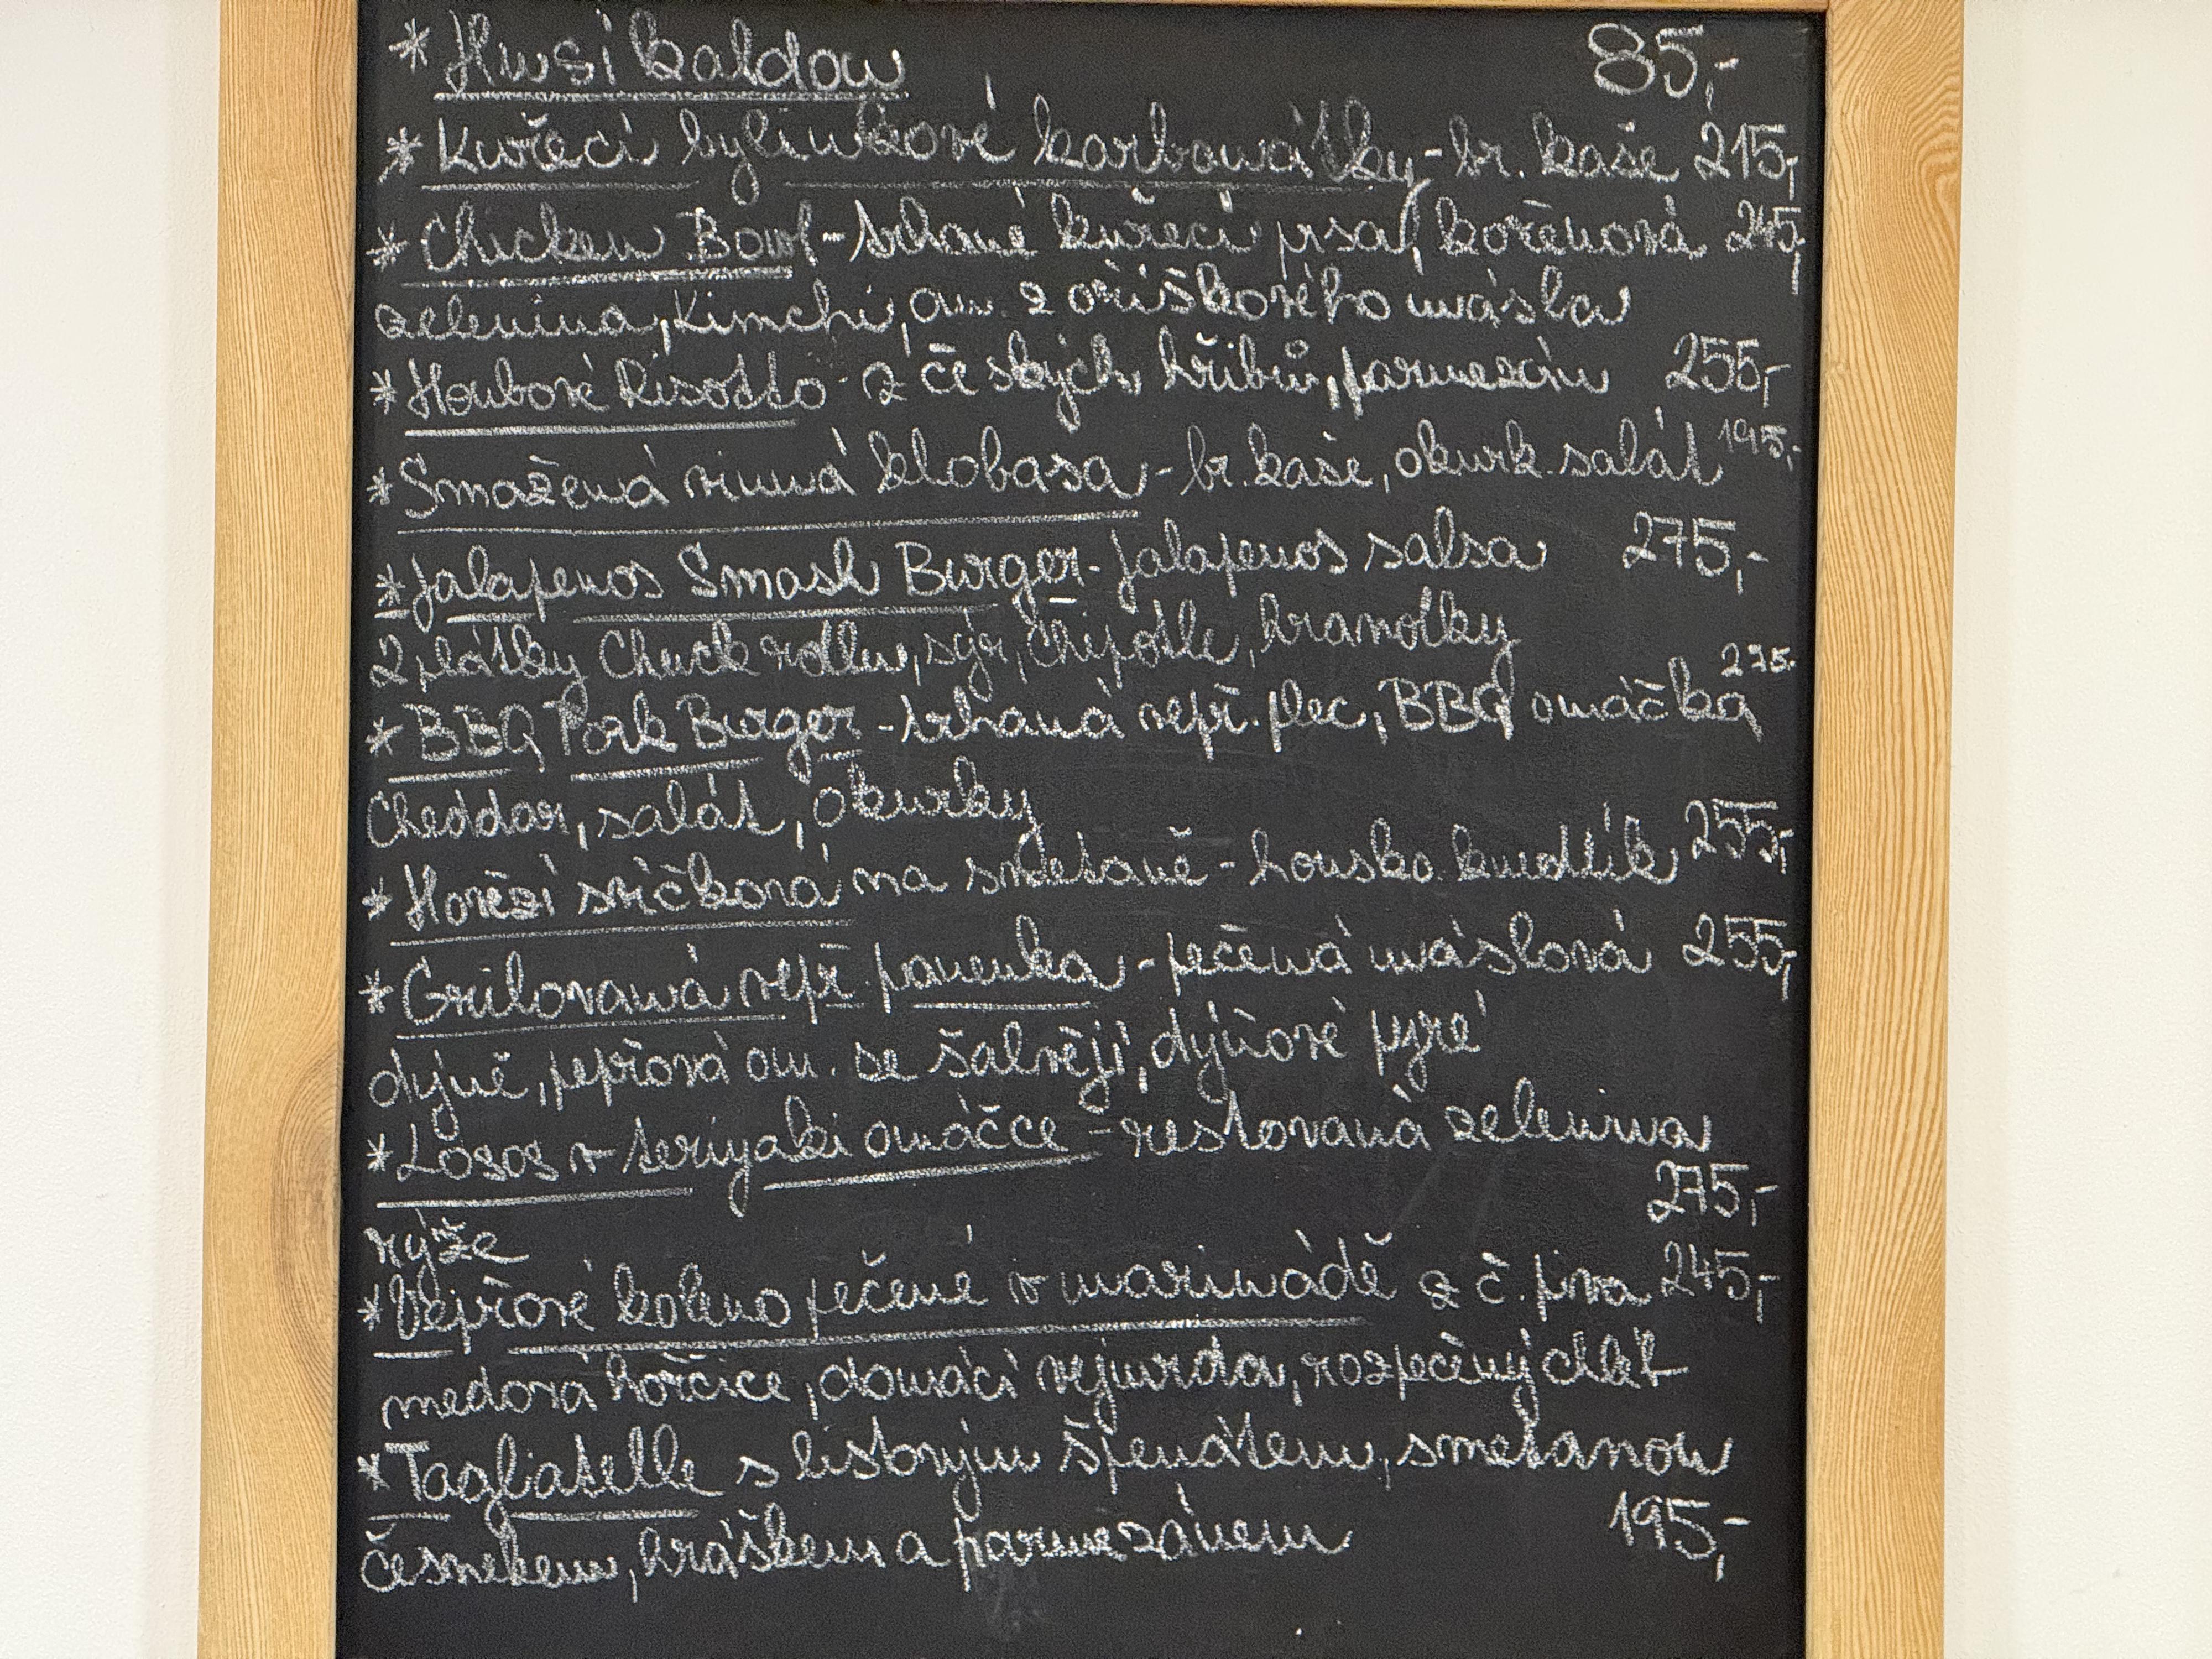 * Husí kaldoun 85,-
* Kuřecí bylinkové karbanátky - br. kaše 215,-
* Chicken Bowl - trhané kuřecí prsa, kořenová 245,-
zelenina, Kimchi, om. z oříškového másla
* Houbové Risotto - z českých hřibů, parmezán 255,-
* Smažená vinná klobasa - br. kaše, okurk. salát 195,-
* Jalapenos Smash Burger - Jalapenos salsa 275,-
2 plátky Chuck rollu, sýr, Chipotle, hranolky
* BBQ Pork Burger - trhaná vepř. plec, BBQ omáčka 275.-
Cheddar, salát, okurky
* Hovězí svíčková na smetaně - housko. knedlík 255,-
* Grilovaná vepř. panenka - pečená máslová 255,-
dýně, pepřová om. se šalvějí, dýňové pyré
* Losos v teriyaki omáčce - restovaná zelenina
275,-
rýže
* Vepřové koleno pečené v marinádě z č. piva 245,-
medová hořčice, domácí vejmrda, rozpečený chléb
* Tagliatelle s listovým špenátem, smetanou
česnekem, hráškem a parmezánem 195,-